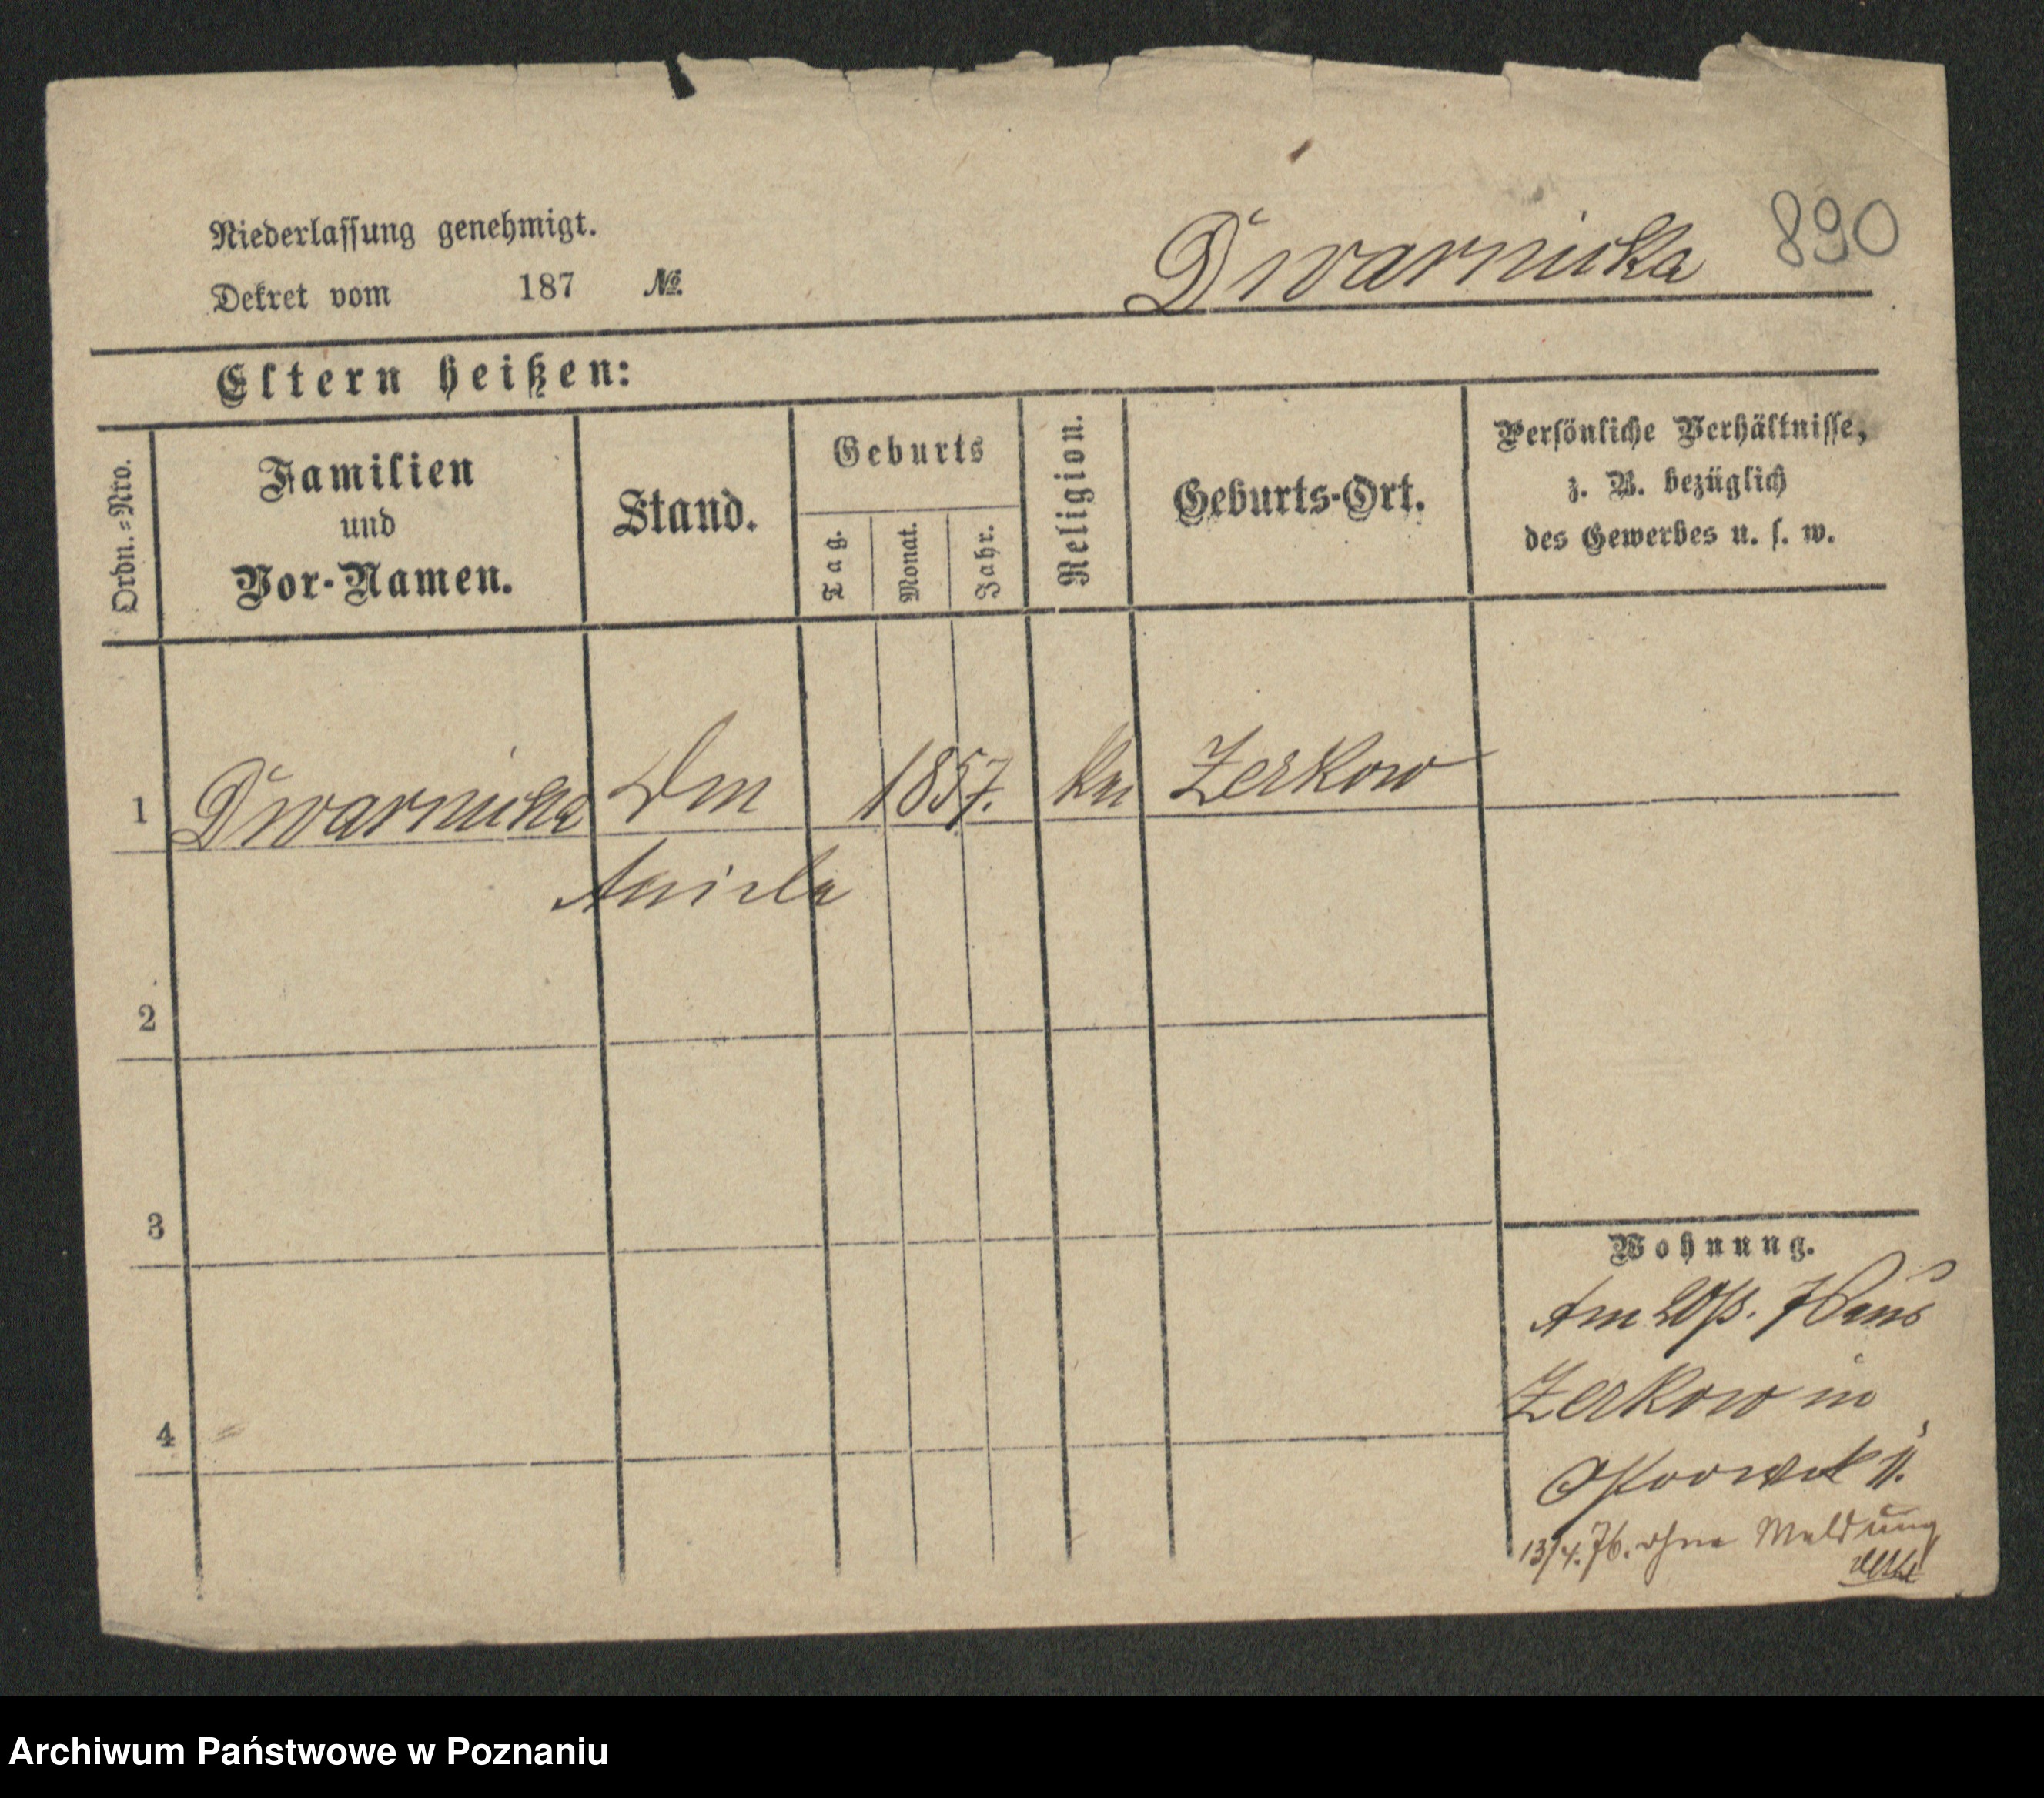 890
Niederlassung genehmigt.
Dekret vom 187 No.
Dwarnicka
Eltern heißen:
Ordn.=Nro.
Familien
und
Vor-Namen.
Stand.
Geburts
Tag.
Monat.
Jahr.
Religion.
Geburts-Ort.
Persönliche Verhältnisse,
z. B. bezüglich
des Gewerbes u. s. w.
1 Dwarnicka Dm 1857. Zerkow
Aniela
2
3
4
Wohnung.
Am
Zerkow in
Ostrowek 11.
13/4.76. ohne Meldung
Archiwum Państwowe w Poznaniu